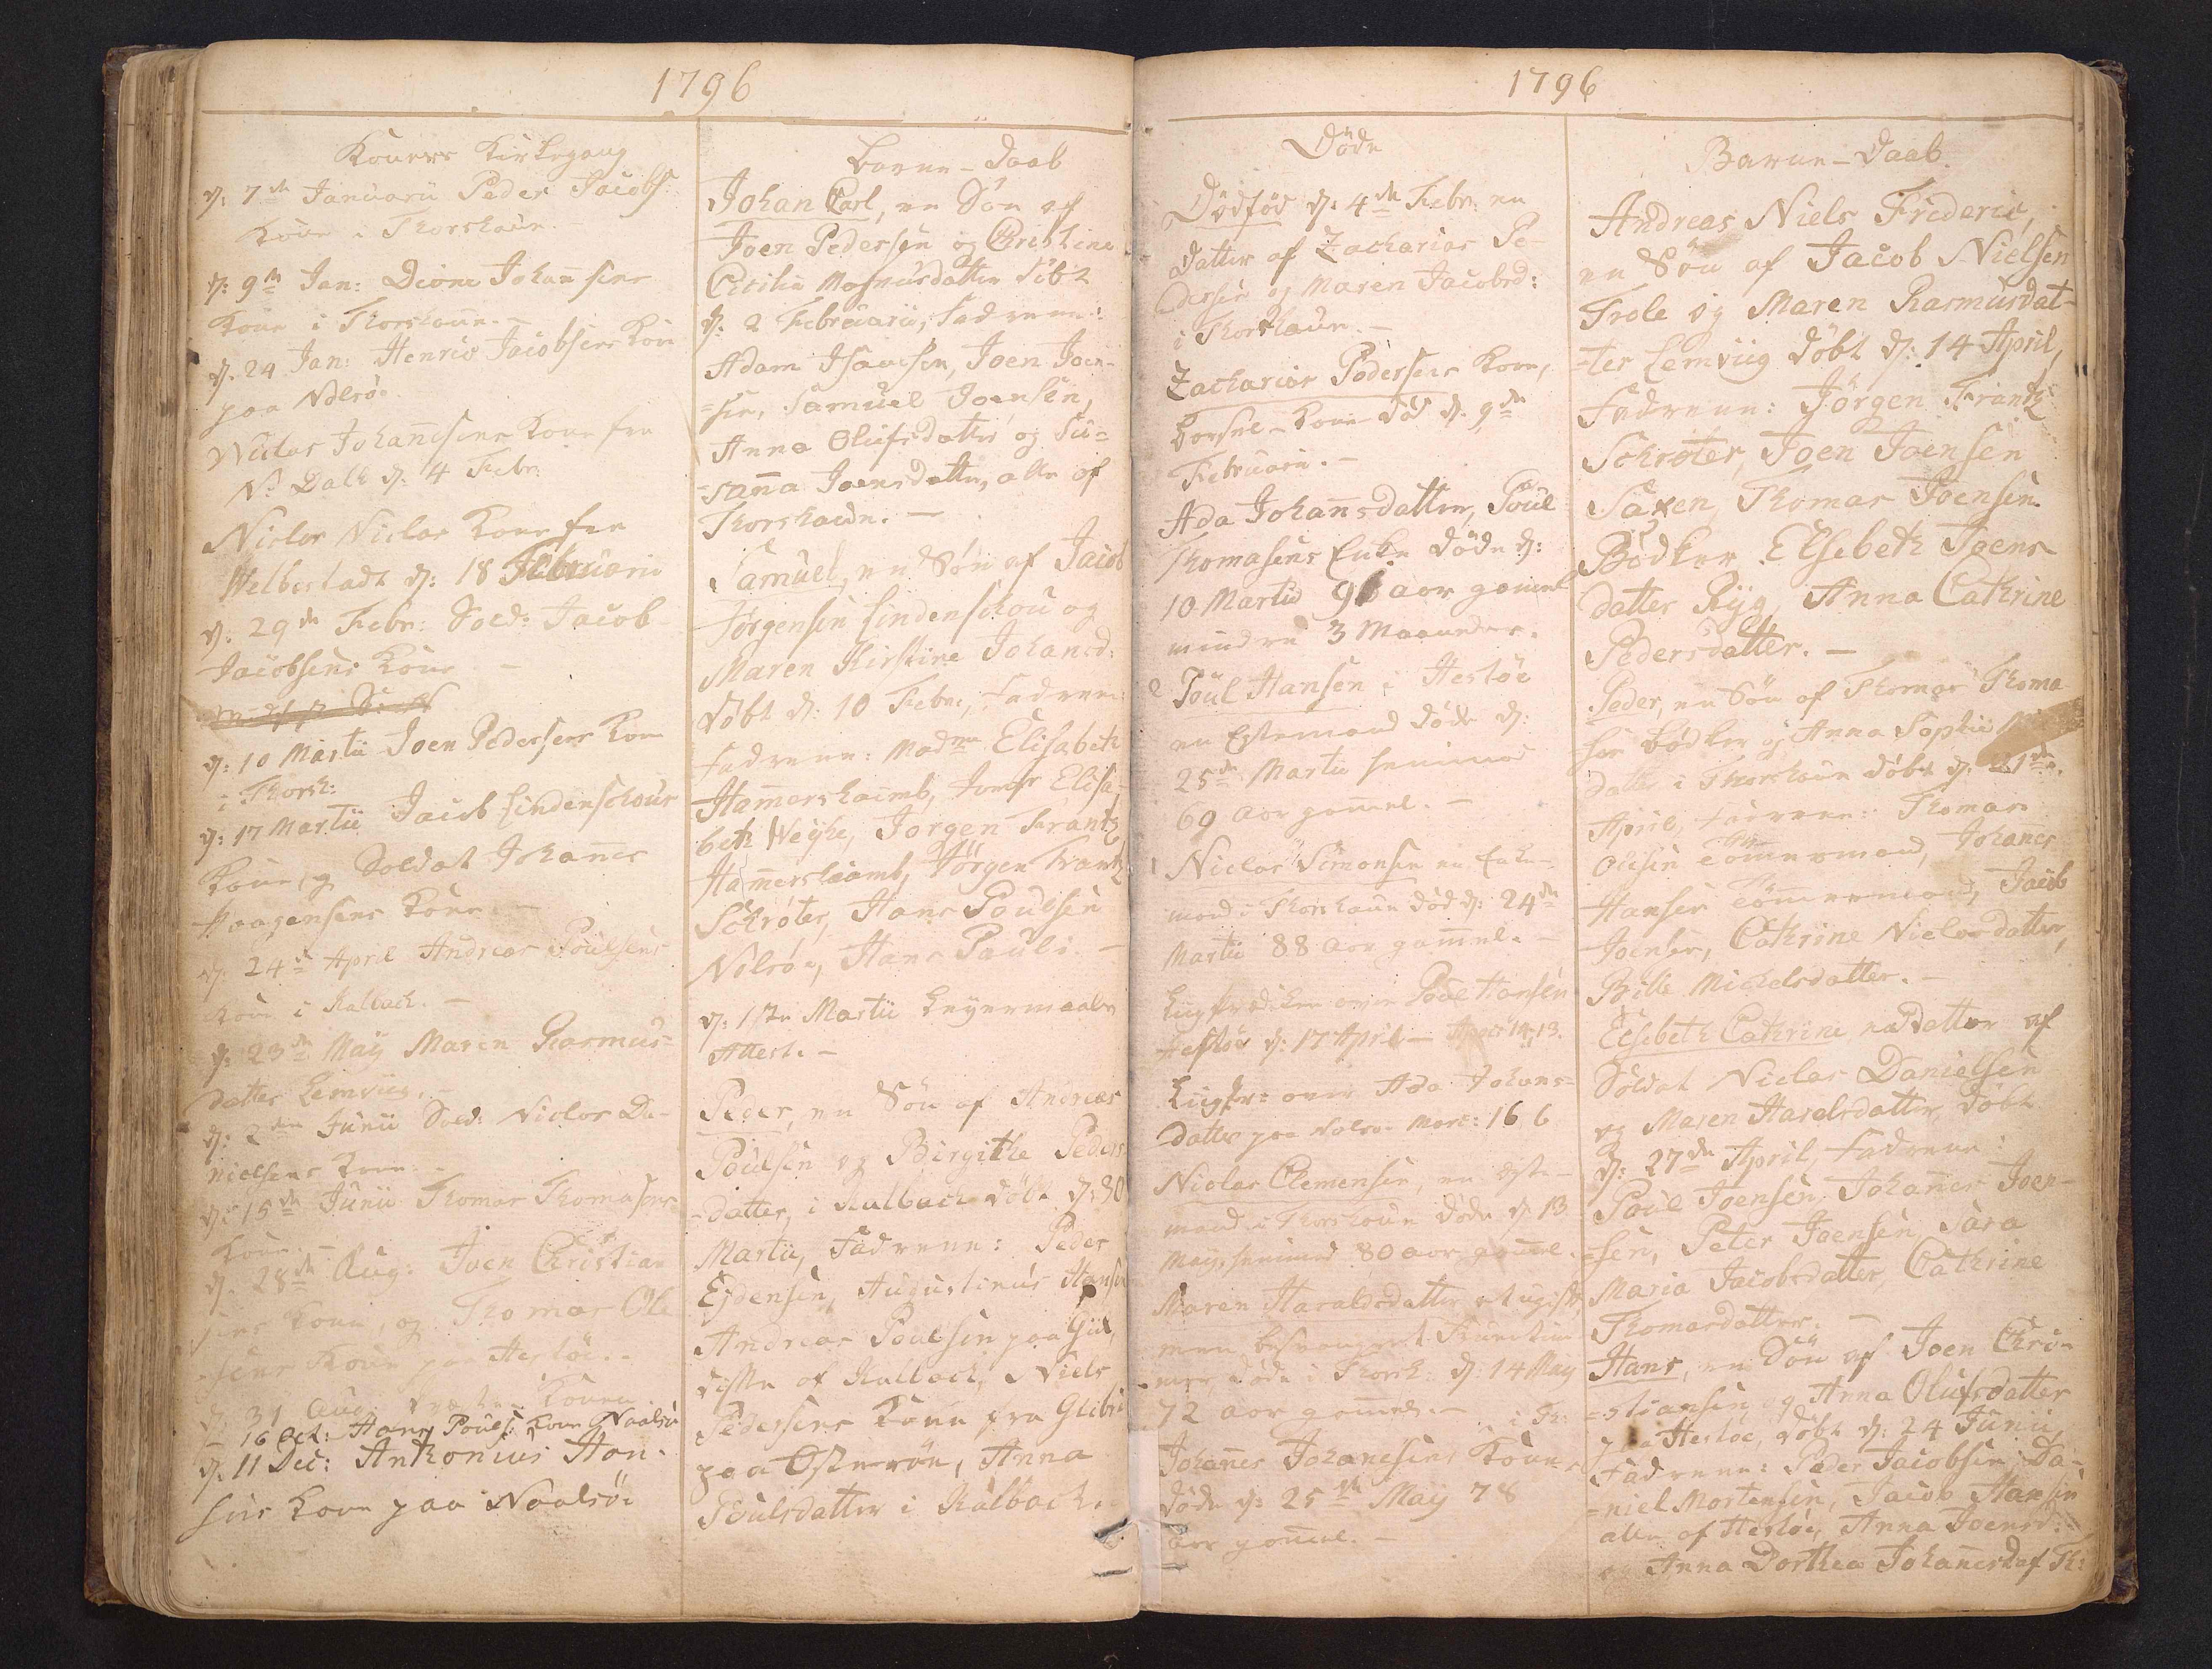 1796
Koners Kirkegang
d: 7de Januarii Peder Jacobs
Kone i Thorshavn. -
d: 9de Jan: Dione Johansens
Kone i Thorshavn. -
d: 24 Jan: Henric Jacobsens Kone
paa Nolsöe
Niclas Johannesens Kone fra
N: Dahl d: 4 Febr:
Niclas Niclas Kone fra
Welbestadt d: 18 Februarii
d: 29de Febr: Sold: Jacob
Jacobsens Kone. -
d: 10 Martii Joen Pedersens Kone
i Thorsh:
d: 17 Martii Jacob Lindenschous
Kone, og Soldat Johannes
Haagensens Kone. -
d: 24de April Andreas Poulsens
Kone i Kalbach. -
d: 23de May Maren Rasmus-
datter Lemvig. -
d: 2den Junii Sold: Niclas Da-
nielsens Kone. -
d: 15de Junii Thomas Thomasens
Kone. -
d: 28de Aug: Joen Christian
sens Kone, og Thomas Ole
sens Kone paa Hestöe. -
d: 31 Aug: Konen
16 Oct: Hans Pouls: Kone Naalsöe
d: 11 Dec: Anthonius Han-
sens Kone paa Naalsöe
Barne-Daab
Johan Carl, en Sön af
Joen Pedersen og Christine
Cecilia Magnusdatter döbt
d: 2 Februarii, Fadrene:
Adam Isacsen, Joen Joen-
=sen, Samuel Joensen,
Anna Olufsdatter og Su=
=sanna Joensdatter, alle af
Thorshavn. -
Samuel, en Sön af Jacob
Jörgensen Lindenschou og
Maren Kirstine Johansd:
döbt d: 10 Febr:, Fadrene
Fadrene: Madme Elisabeth
Hammershaimb, Jomfr Elisa-
beth Weyhe, Jörgen Frantz
Hammershaimb, Jörgen Frantz
Schröter, Hans Poulsen
Nolsöe, Hans Pauli. -
d: 1ste Martii Leyermaals
Attest. -
Peder, en Sön af Andreas
Poulsen og Birgithe Peders-
=datter, i Kalbach döbt d: 30
Martii, Fadrene: Peder
Eydensen, Augustinus Hansen
Andreas Poulsen paa Giil
disse af Kalbach, Niels
Pedersens Kone fra Glibre
paa Österöen, Anna
Poulsdatter i Kalbach. -
1796
Döde
Dödfød d: 4de Febr: en
Datter af Zacharias Pe-
dersen og Maren Jacobsd:
i Thorshavn. -
Zacharias Pedersens Kone,
Barsel-Kone död d: 9de
Februarii. -
Ada Johannsdatter, Poul
Thomasens Enke döde d:
10 Martii 91 aar gammel
mindre 3 Maaneder.
Poul Hansen i Hestöe
en Egtemand döde d:
25de Martii henimod
69 aar gammel. -
Niclas Simonsen en Enke-
mand i Thorshavn död d: 24de
Martii 88 aar gammel. -
Liigprædiken over Poul Hansen
Hestöe d: 17 April - Apoc: 14, 13.
Liigpr: over Ada Johans-
datter paa Nolsöe Marc: 16 6
Niclas Clemensen, en ægte-
mand i Thorshavn döde d: 13
Maji henimod 80 aar gammel.
Maren Haraldsdatter et ugift,
men besvangret Fruentim-
mer, döde i Thorsh: d: 14 May
72 aar gammel. -
i Th:
Johannes Johannesens Kone
döde d: 25de May 78
aar gammel. -
Barne-Daab.
Andreas Niels Frideric,
en Sön af Jacob Nielsen
Trole og Maren Rasmusdat-
=ter Lemviig döbt d: 14 April,
Fadrene: Jörgen Frantz
Schröter, Joen Joensen
Saxen, Thomas Joensen
Bödker, Elsebeth Joens-
datter Ryg, Anna Cathrine
Pedersdatter. -
Peder, en Sön af Thomas Thoma
sen Bödker og Anna Sophie
datter i Thorshavn döbt d: 21de
April, Fadrene: Thomas
Olesen Tömmermand, Johannes
Hansen Tömmermand, Jacob
Joensen, Cathrine Niclasdatter,
Bille Michelsdatter. -
Elsebeth Cathrine en Datter af
Soldat Niclas Danielsen
og Maren Haralsdatter, döbt
d: 27de April, Fadrene:
Poul Joensen, Johannes Joen-
=sen, Peter Joensen, Sara
Maria Jacobsdatter, Cathrine
Thomasdatter. -
Hans, en Sön af Joen Chri-
=stiansen og Anna Olufsdatter
paa Hestöe, döbt d: 24 Junii
Fadrene: Peder Jacobsen, Da-
=niel Mortensen, Jacob Hansen
alle af Hestöe, Anna Joensd:
Anna Dorthea Johannesd af Th: